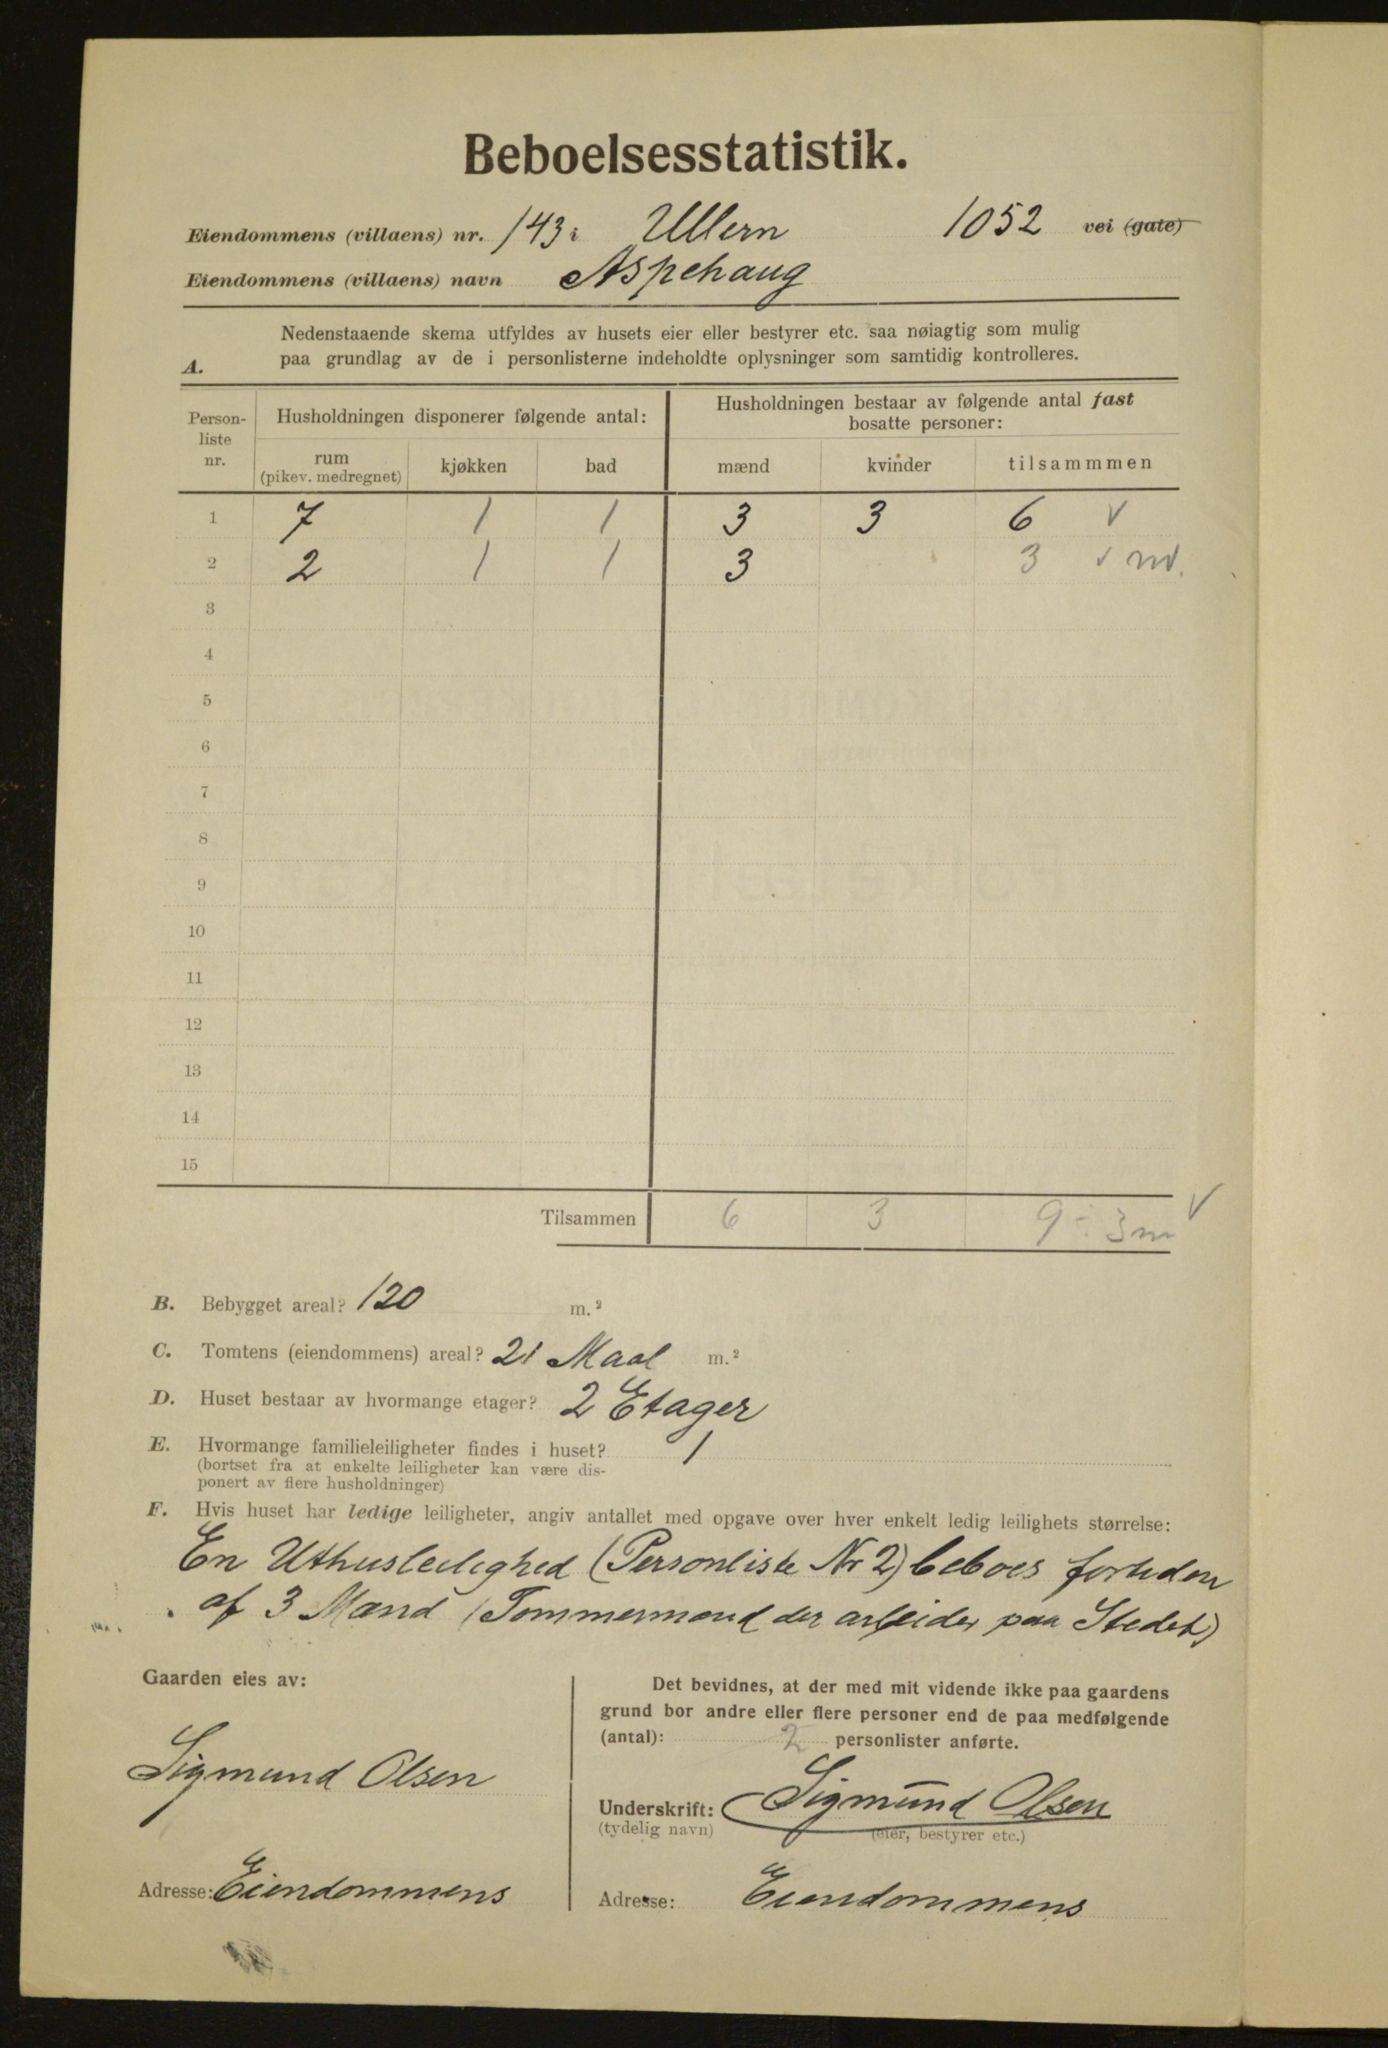 Beboelsesstatistik.
Eiendommens (villaens) nr. 143 i Ullern 1052 vei (gate)
Eiendommens (villaens) navn Aspehaug
Nedenstaaende skema utfyldes av husets eier eller bestyrer etc. saa nøiagtig som mulig
A. paa grundlag av de i personlisterne indeholdte oplysninger som samtidig kontrolleres.
Person-
liste
nr.
Husholdningen disponerer følgende antal:
Husholdningen bestaar av følgende antal fast
bosatte personer:
rum
(pikev. medregnet)
kjøkken
bad
mænd
kvinder
tilsammmen
1 7 1 1 3 3 6 v
2 2 1 1 3 3 v
3
4
5
6
7
8
9
10
11
12
13
14
15
Tilsammen 6 3 9 ÷ 3 m v
B. Bebygget areal? 120 m.²
C. Tomtens (eiendommens) areal? 21 Maal m.²
D. Huset bestaar av hvormange etager? 2 Etager
E. Hvormange familieleiligheter findes i huset? 1
(bortset fra at enkelte leiligheter kan være dis-
ponert av flere husholdninger)
F. Hvis huset har ledige leiligheter, angiv antallet med opgave over hver enkelt ledig leilighets størrelse:
En Uthusleilighed (Personliste Nr 2) beboes fortiden
af 3 Mænd (Tømmermænd der arbeider paa Stedet)
Gaarden eies av:
Sigmund Olsen
Adresse: Eiendommens
Det bevidnes, at der med mit vidende ikke paa gaardens
grund bor andre eller flere personer end de paa medfølgende
(antal): 2 personlister anførte.
Underskrift: Sigmund Olsen
(tydelig navn) (eier, bestyrer etc.)
Adresse: Eiendommens